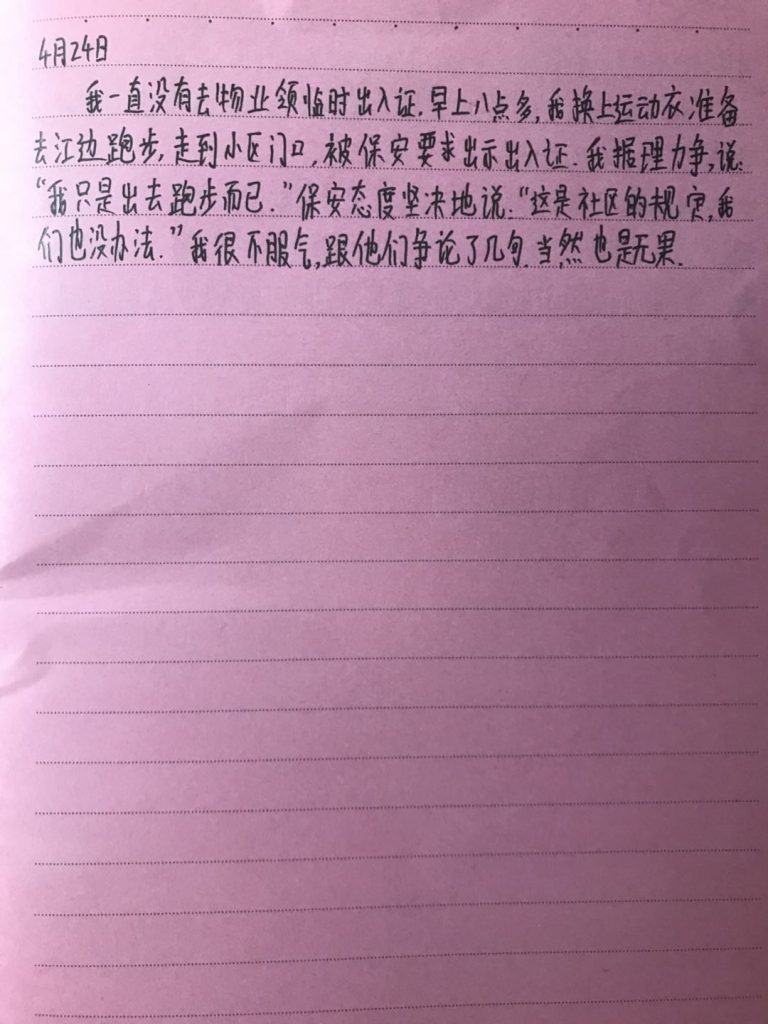 4月24日
我一直没有去物业领临时出入证.早上八点多,我换上运动衣准备
去江边跑步,走到小区门口,被保安要求出示出入证.我据理力争,说:
“我只是出去跑步而已.”保安态度坚决地说:“这是社区的规定,我
们也没办法.”我很不服气,跟他们争论了几句.当然也是无果.